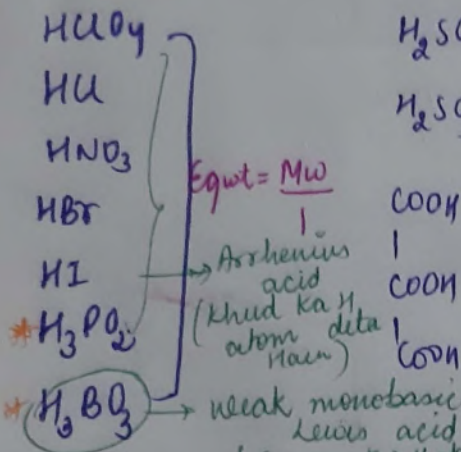 HClO4
HCl
HNO3
HBr
HI
*H3PO2
*H3BO3
Eqwt = Mw
1
→ Arrhenius
acid
(Khud Ka H
atom deta
Hain)
→ weak monobasic
Lewis acid
H2S
H2S
COOH
|
COOH
|
COOH